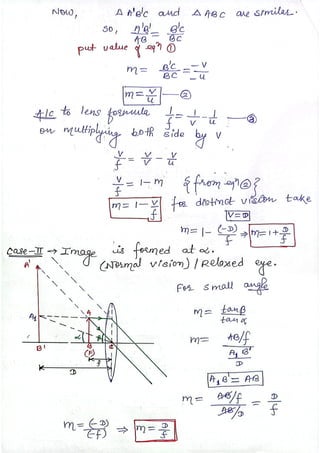 Now, Δ A'B'C and Δ ABC are similar.
so, A'B'/AB = B'C/BC
put value of eqn ①
m = B'C/BC = -v/-u
m = v/u — ②
A/c to lens formula 1/f = 1/v - 1/u — ③
on multiplying both side by v
v/f = v/v - v/u
v/f = 1 - m {from eqn ②}
m = 1 - v/f for distinct vision take
v = D
m = 1 - (-D)/f ⇒ m = 1 + D/f
Case-II → Image is formed at α.
(Normal vision) / Relaxed eye.
A'
A₁
A
B'
B
C
α
f
D
For small angle
m = tanβ/tanα
m = AB/f / A₁B'/D
A₁B' = AB
m = AB/f / AB/D = D/f
m = (-D)/(-f) ⇒ m = D/f